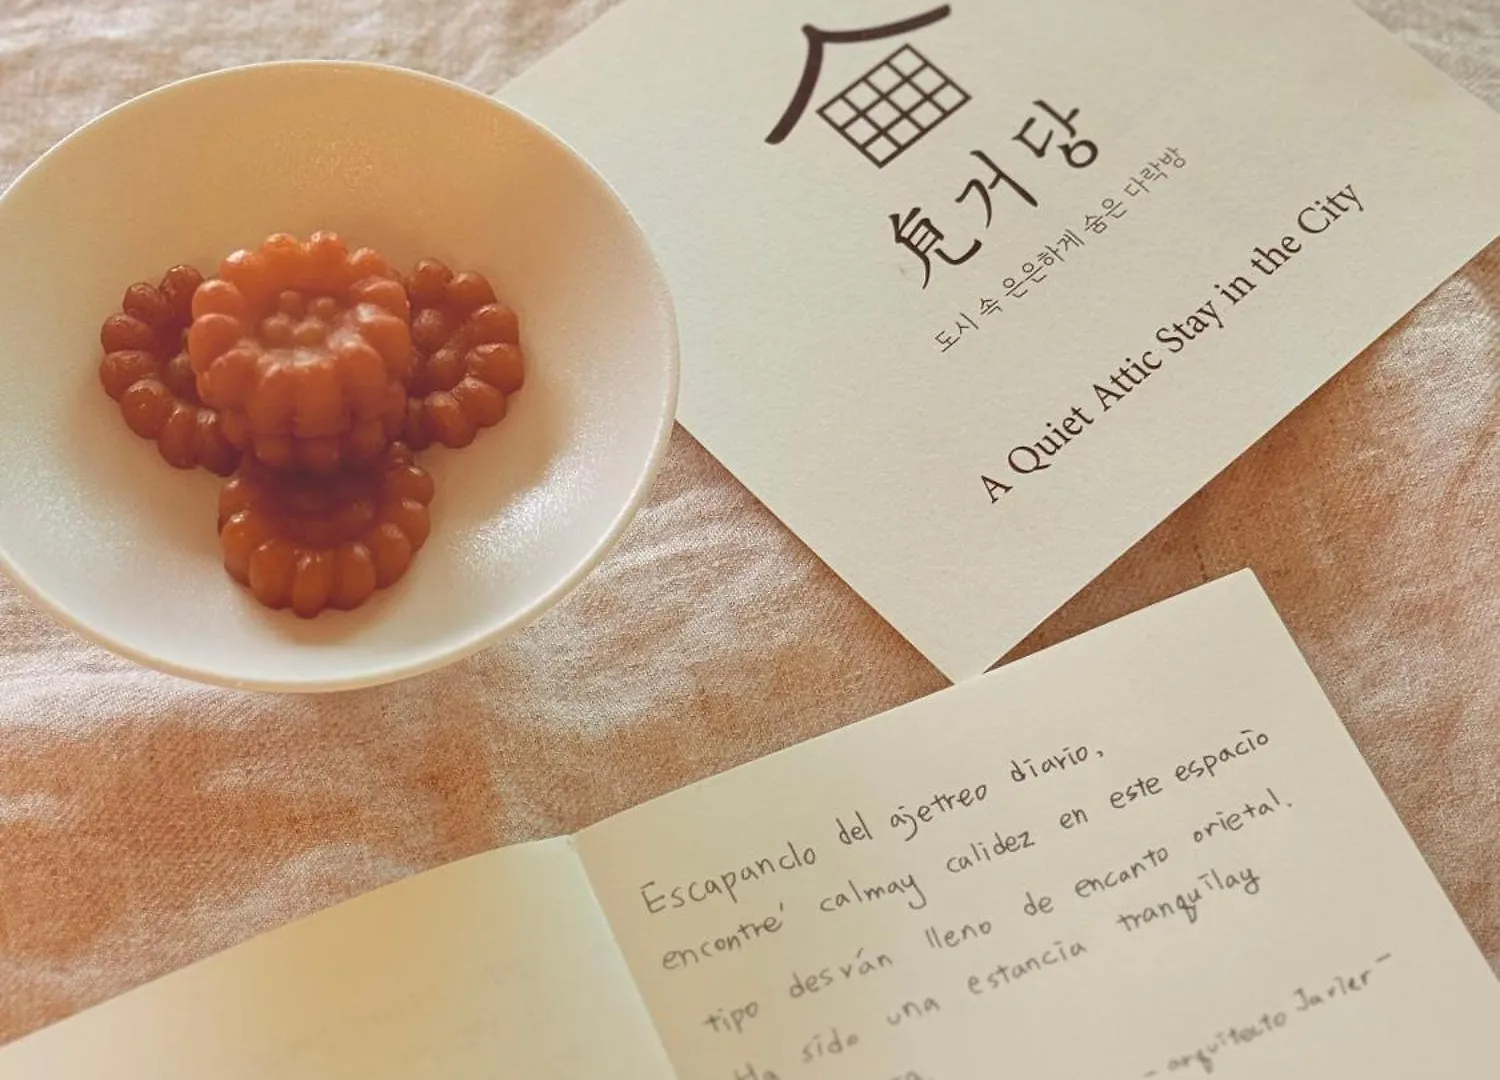 見거당
도시 속 은은하게 숨은 다락방
A Quiet Attic Stay in the City
Escapanclo del ajetreo diario,
encontré calmay calidez en este espacio
tipo desván lleno de encanto orietal.
Ha sido una estancia tranquilay
- arquitecto Javier -